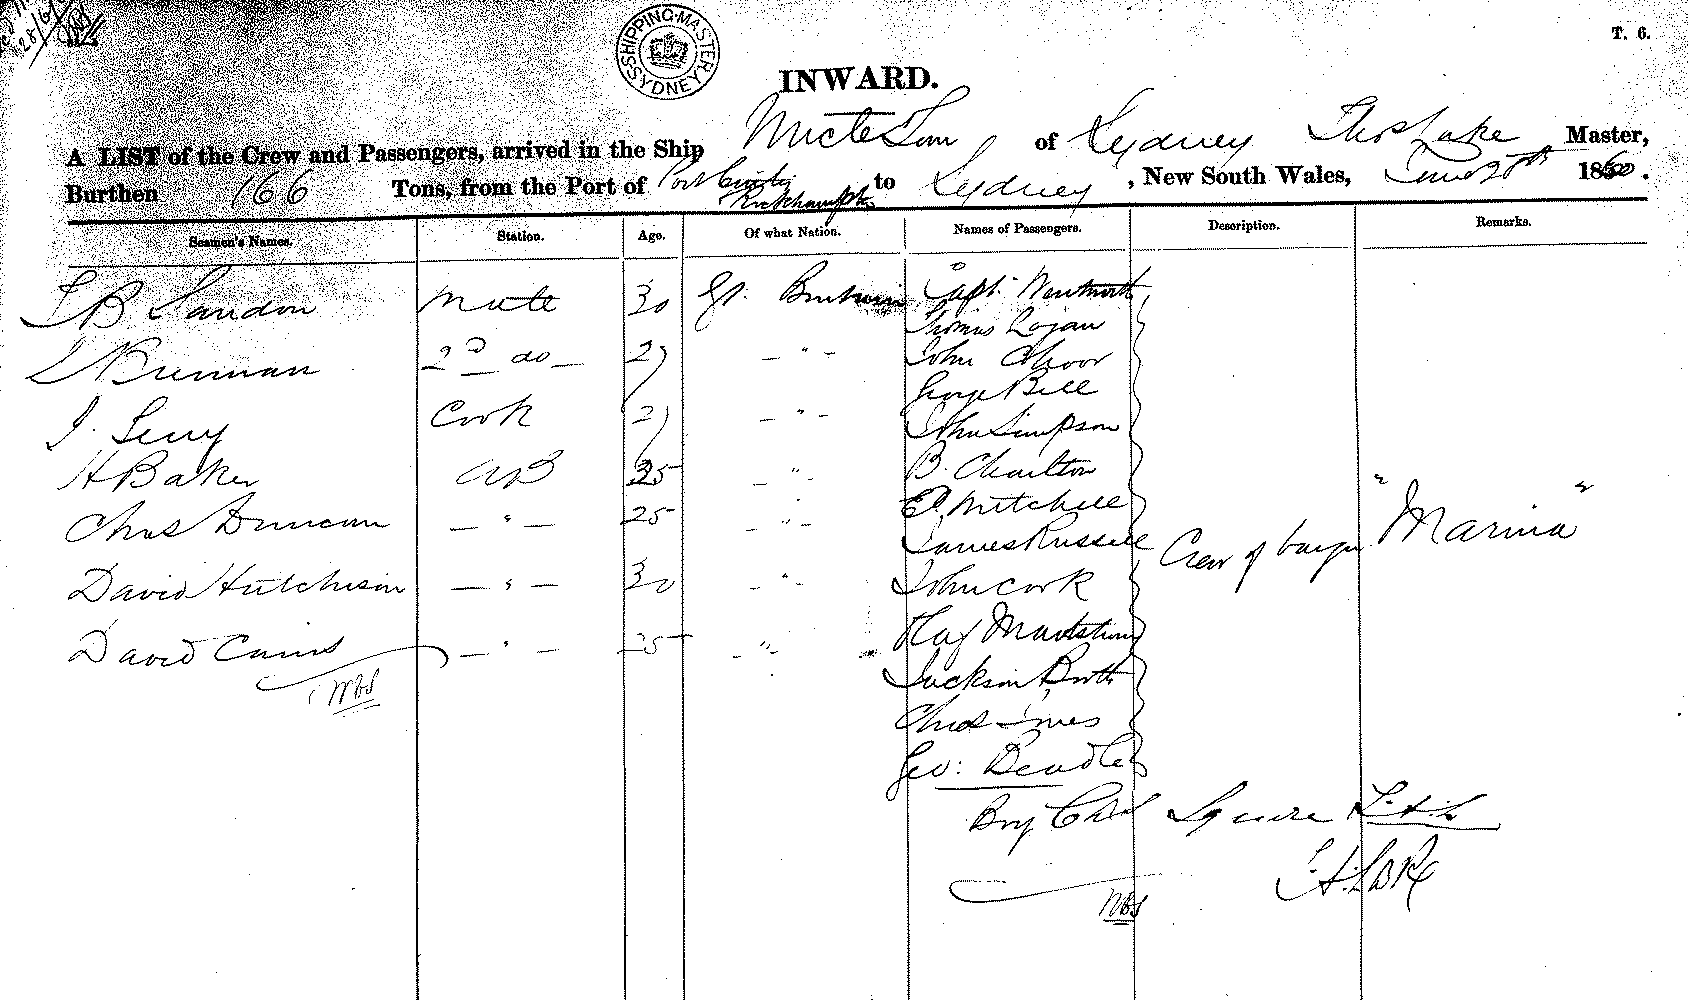 28/6/
SHIPPING MASTER SYDNEY
T. 6.
INWARD.
A LIST of the Crew and Passengers, arrived in the Ship of Sydney Thos Lake Master,
Burthen 166 Tons, from the Port of Port Curtis Rockhampton to Sydney, New South Wales, June 20th 1860.
Seamen's Names. Station. Age. Of what Nation. Names of Passengers. Description. Remarks.
B Landon Mate 30 Gt. Britain Capt. Wentworth
Thomas Logan
Brennan 2d do 27 — " — John
George Bell
J. Cook 27 — " — John Simpson
H Baker AB 25 — " B. Charlton
Chas Duncan — " — 25 — " — E. Mitchell
James Russell
Crew of barque "Marina"
David Hutchison — " — 30 — " John Cook
David Cairns — " — 25 — " Hag
Jackson Booth
WBS
Chas Innes
Geo: Beadle
Boy Chas Squire
T. H. Lake
WBS